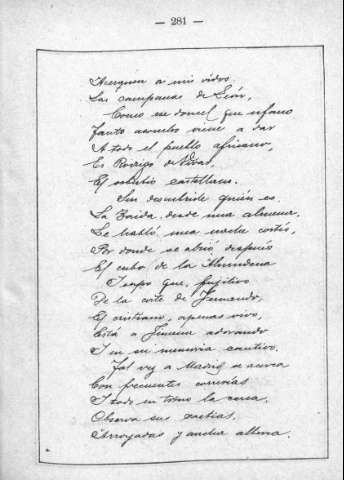 — 281 —
Acerquen a mis oidos
Las campanas de León,
Como ese doncel que ufano
Tanto asombro viene a dar
A todo el pueblo africano,
Es Rodrigo de Vivar
El soberbio castellano.
Sin descubrirle quién es
La Zaida desde una almena
Le habló una noche cortés,
Por donde se abrió después
El cubo de la Almudena
Y supo que, fugitivo
De la corte de Fernando,
El cristiano, apenas vivo,
Está a Jimena adorando
Y en su memoria cautivo.
Tal vez a Madrid se acerca
Con frecuentes correrías
Y todo en torno la cerca,
Observa sus
Arroyadas y ancha alberca.